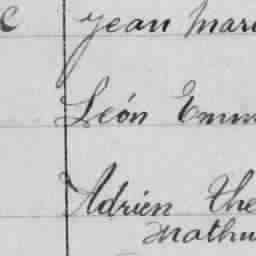 Jean Mari
León Emm
Adrien The
Mathu